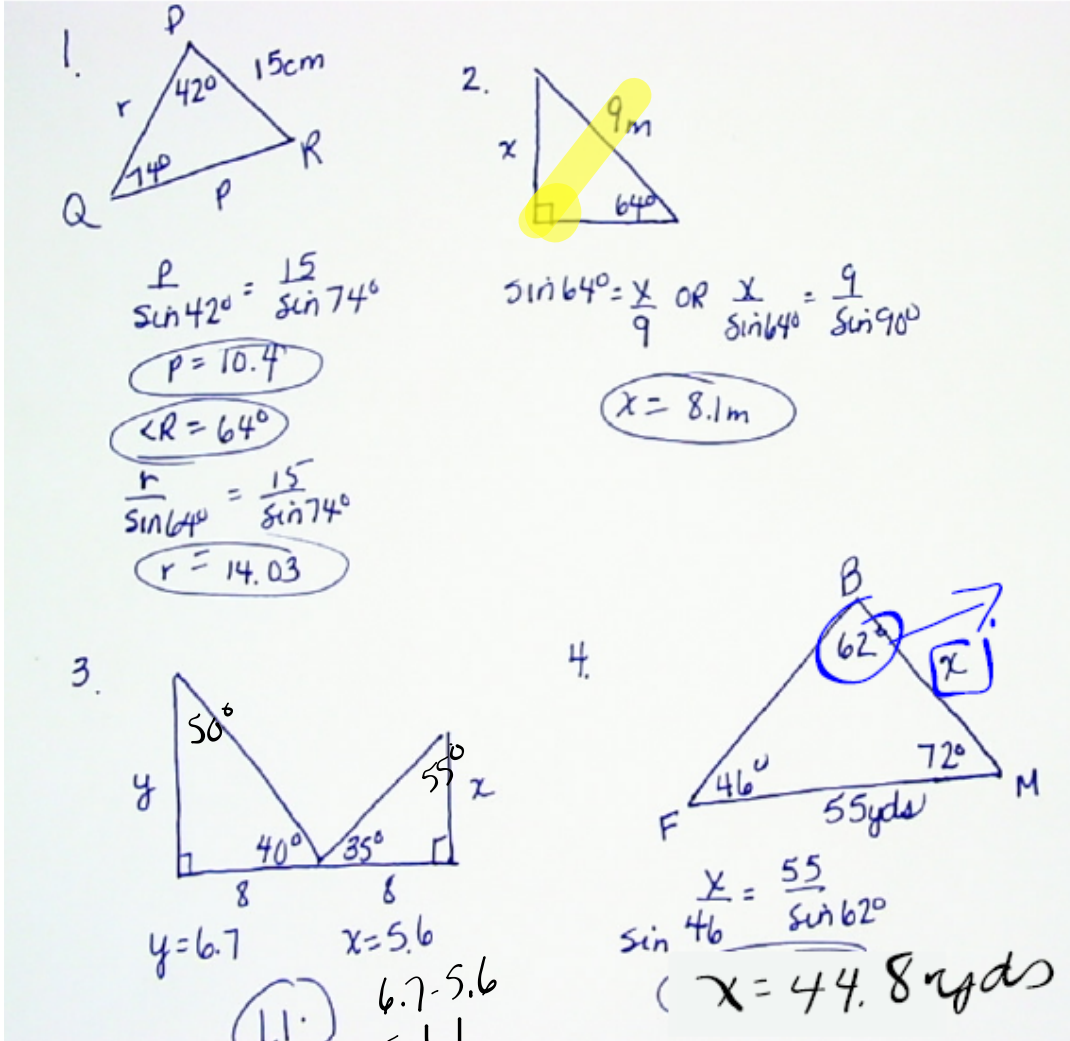 1.
P
42° 15cm
r
74° R
Q P
P/sin42° = 15/sin74°
P = 10.4
<R = 64°
r/sin64° = 15/sin74°
r = 14.03
2.
9m
x
64°
sin64° = x/9 OR x/sin64° = 9/sin90°
x = 8.1m
3.
50°
55°
y x
40° 35°
8 8
y=6.7 x=5.6
6.7-5.6
= 1.1
1.1
4.
B
62°
x
46° 72°
F 55yds M
sin x/46 = 55/sin62°
( x = 44.8 yds